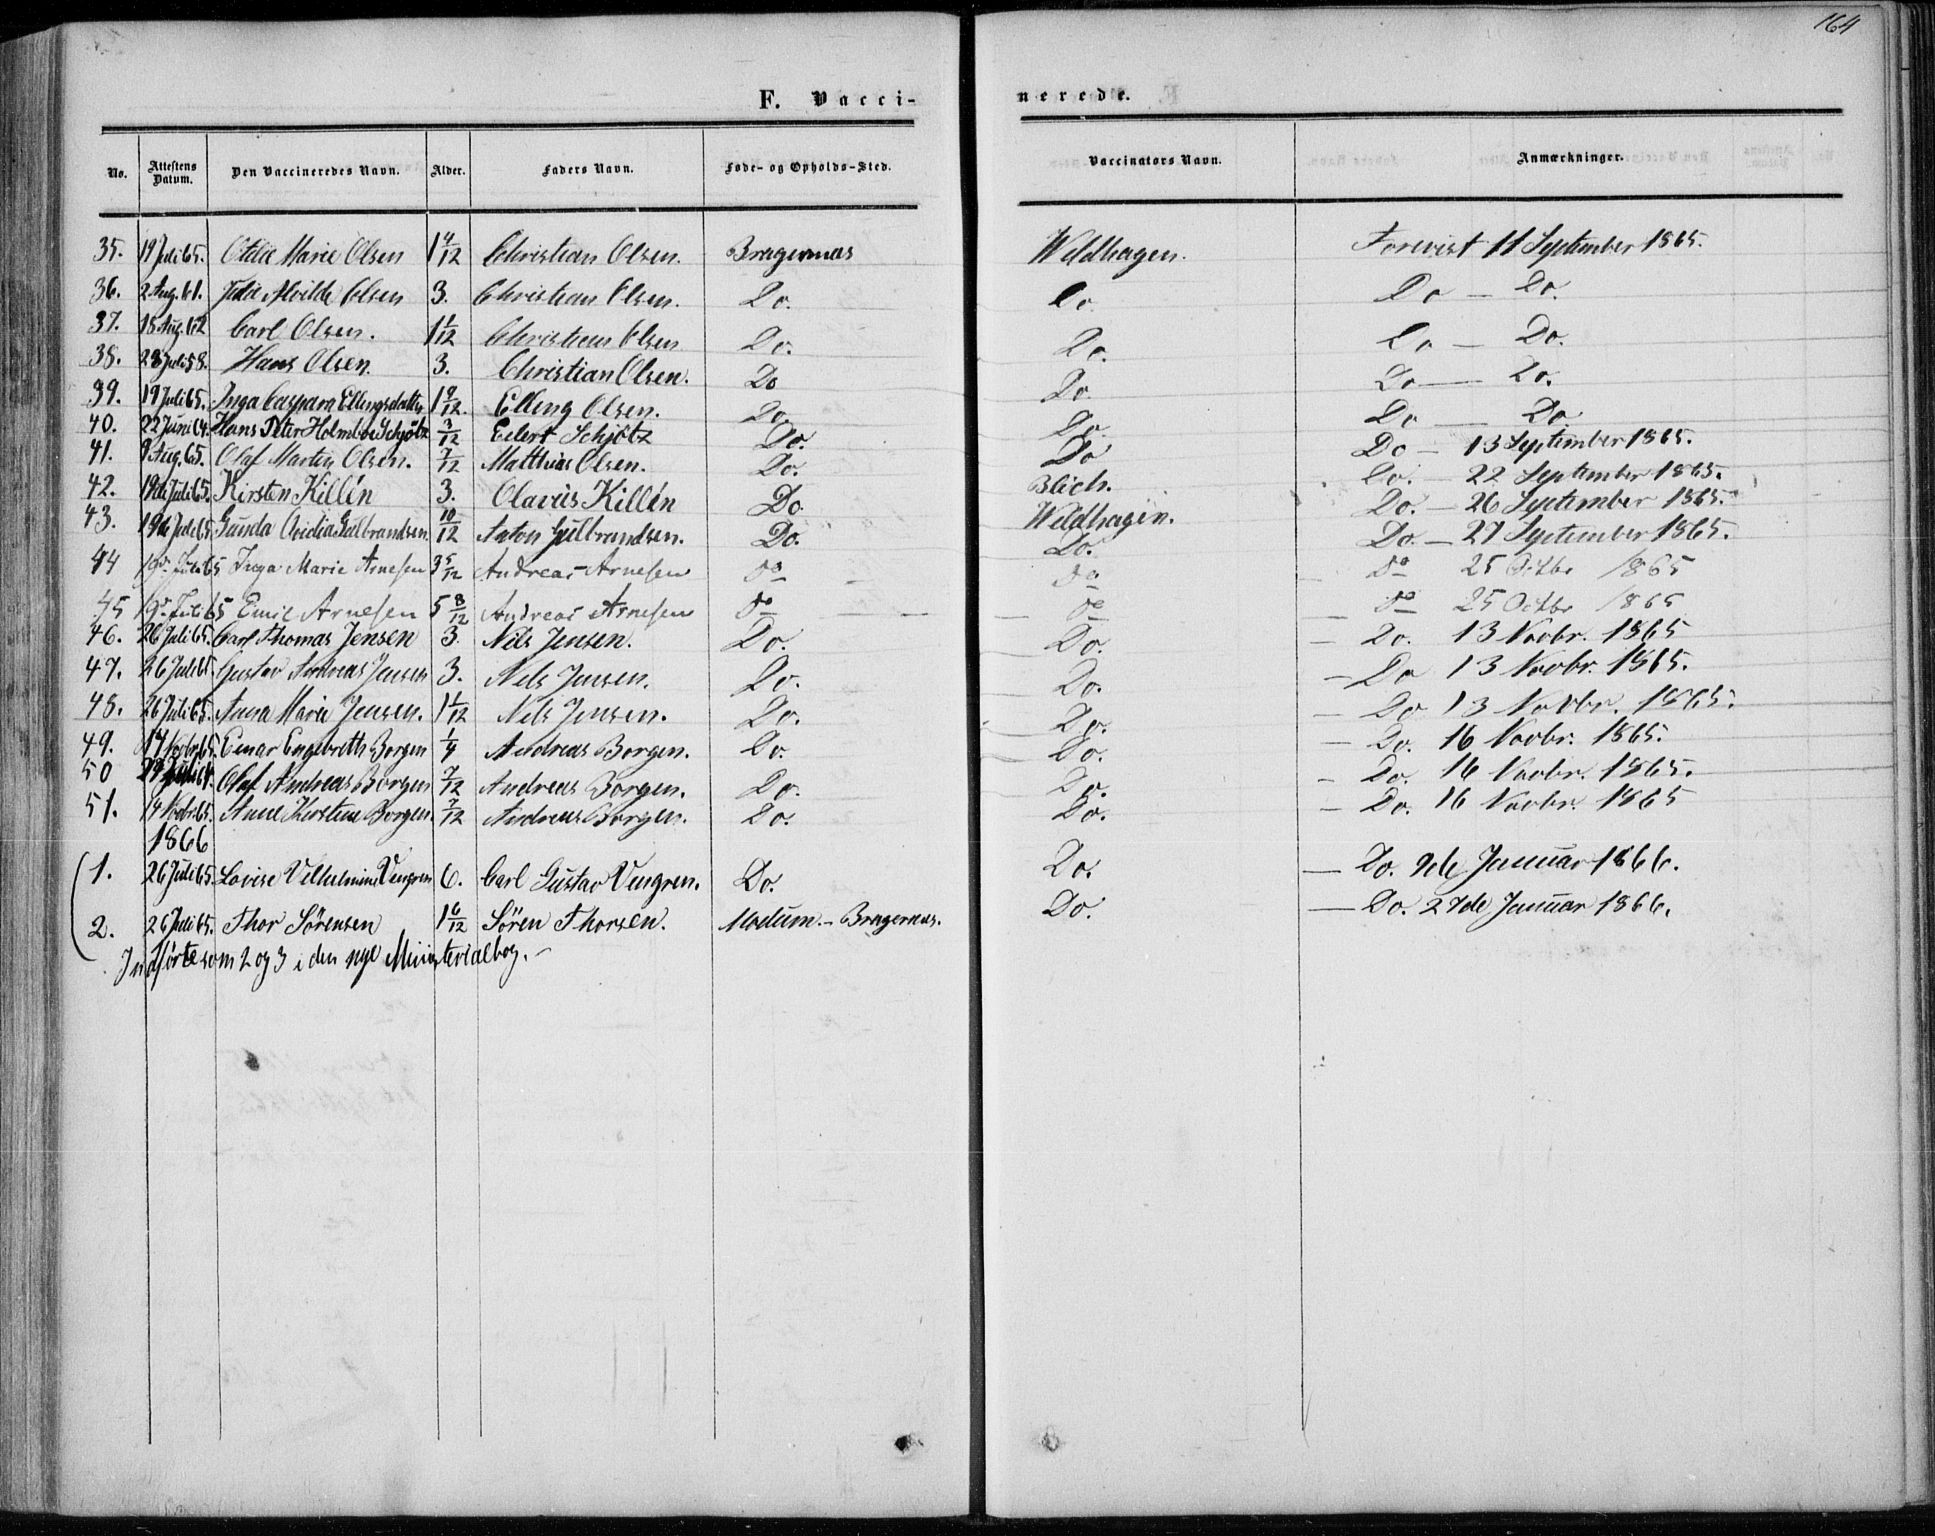 164
F. Vacci-
nerede.
No. Attestens Datum. Den Vaccineredes Navn. Alder. Faders Navn. Føde- og Opholds-Sted. Vaccinators Navn. Anmærkninger.
35. 19 Juli 65. Otilie Marie Olsen 1 4/12 Christian Olsen. Bragernæs Weldhagen. Forevist 11 September 1865.
36. 2 Aug. 61. Julie Alvilde Olsen 3. Christian Olsen. Do. Do. Do - Do.
37. 18 Aug. 62 Carl Olsen. 1 1/12 Christian Olsen Do. Do. Do - Do.
38. 28 Juli 58. Hans Olsen. 3. Christian Olsen. Do Do Do - Do.
39. 19 Juli 65. Inga Caspara Ellingsdatter 1 9/12. Elling Olsen. Do Do. Do - Do
40. 22 Juni 64. Hans Peter Holmboe Schjötz 3/12 Eilert Schjötz Do. Do Do - 13 September 1865.
41. 9 Aug. 65. Olaf Martin Olsen. 7/12 Matthias Olsen. Do. Blich. Do. - 22 September 1865.
42. 19de Juli 65. Kirsten Killén 3. Olavus Killén Do. Weldhagen. Do. - 26 September 1865.
43. 19de Juli 65 Gunda Ovidia Gulbrandsen. 10/12 Anton Gulbrandsen. Do. Do. Do. - 27 September 1865.
44 19de Juli 65 Inga Marie Arnesen 3 5/12 Andreas Arnesen do do do 25 Octbr 1865
45 19de Juli 65 Emil Arnesen 5 8/12 Andreas Arnesen do do do 25 Octbr 1865
46. 26 Juli 65. Carl Thomas Jensen 3. Nils Jensen. Do. Do. - Do. 13 Novbr. 1865
47. 26 Juli 65. Gustav Andreas Jensen 3. Nils Jensen. Do. Do. - Do 13 Novbr. 1865.
48. 26 Juli 65. Anna Marie Jensen. 1 1/12 Nils Jensen. Do. Do. - Do 13 Novbr. 1865.
49. 14 Novbr. 65. Einar Engebreth Borgen 1/4 Andreas Borgen. Do. Do. - Do. 16 Novbr. 1865.
50 Olaf Andreas Borgen 7/12 Andreas Borgen. Do. Do. - Do. 16 Novbr. 1865.
51. 14 Novbr. 65. Anne Kirstine Borgen. 7/12 Andreas Borgen. Do. Do. - Do. 16 Novbr. 1865
1866
1. 26 Juli 65. Lovise Vilhelmine Vengren 6. Carl Gustav Vengren. Do. Do. - Do. 9de Januar 1866.
2. 26 Juli 65. Thor Sörensen 1 6/12 Sören Thorsen. Modum. - Bragernæs. Do. - Do. 27de Januar 1866.
Indförte som 2 og 3 i den nye Ministerialbog. -